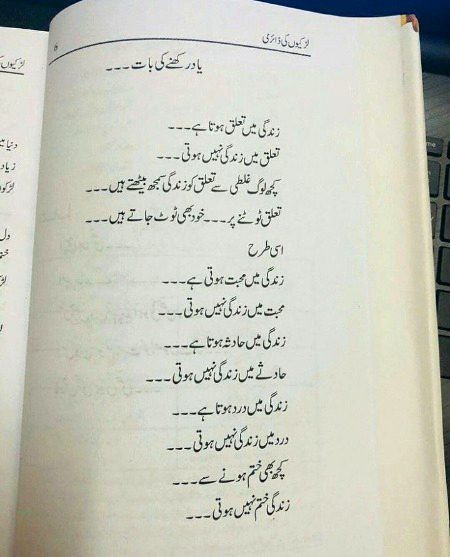 لڑکیوں کی ڈائری
6
یاد رکھنے کی بات ۔۔۔
زندگی میں تعلق ہوتا ہے ۔۔۔
تعلق میں زندگی نہیں ہوتی ۔۔۔
کچھ لوگ غلطی سے تعلق کو زندگی سمجھ بیٹھتے ہیں ۔۔۔
تعلق ٹوٹنے پر ۔۔۔ خود بھی ٹوٹ جاتے ہیں ۔۔۔
اسی طرح
زندگی میں محبت ہوتی ہے ۔۔۔
محبت میں زندگی نہیں ہوتی ۔۔۔
زندگی میں حادثہ ہوتا ہے ۔۔۔
حادثے میں زندگی نہیں ہوتی ۔۔۔
زندگی میں درد ہوتا ہے ۔۔۔
درد میں زندگی نہیں ہوتی ۔۔۔
کچھ بھی ختم ہونے سے ۔۔۔
زندگی ختم نہیں ہوتی ۔۔۔
لڑکیوں
دنیا میں
دل